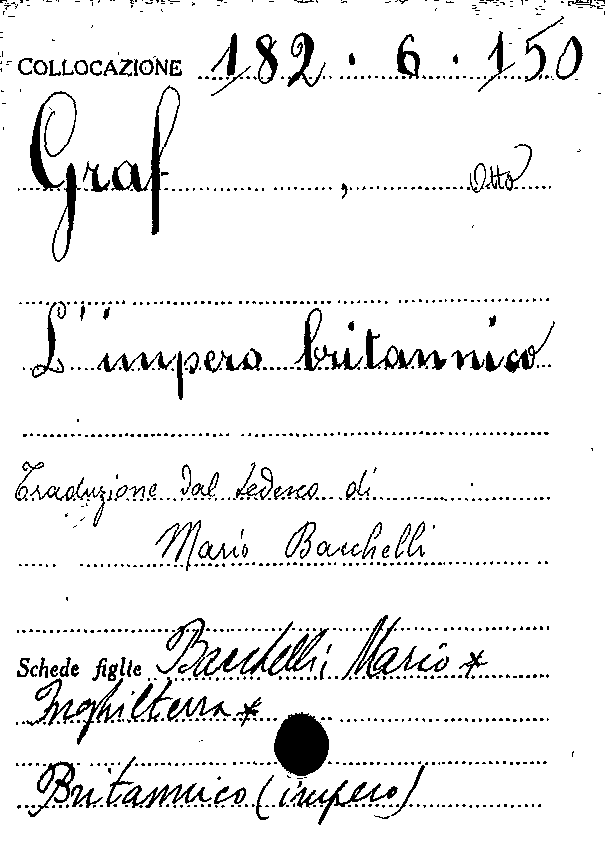 COLLOCAZIONE 182.6.150
Graf, Otto
L'impero britannico
Traduzione dal tedesco di
Mario Bacchelli
Schede figlie Bacchelli, Mario *
Inghilterra *
Britannico (impero)